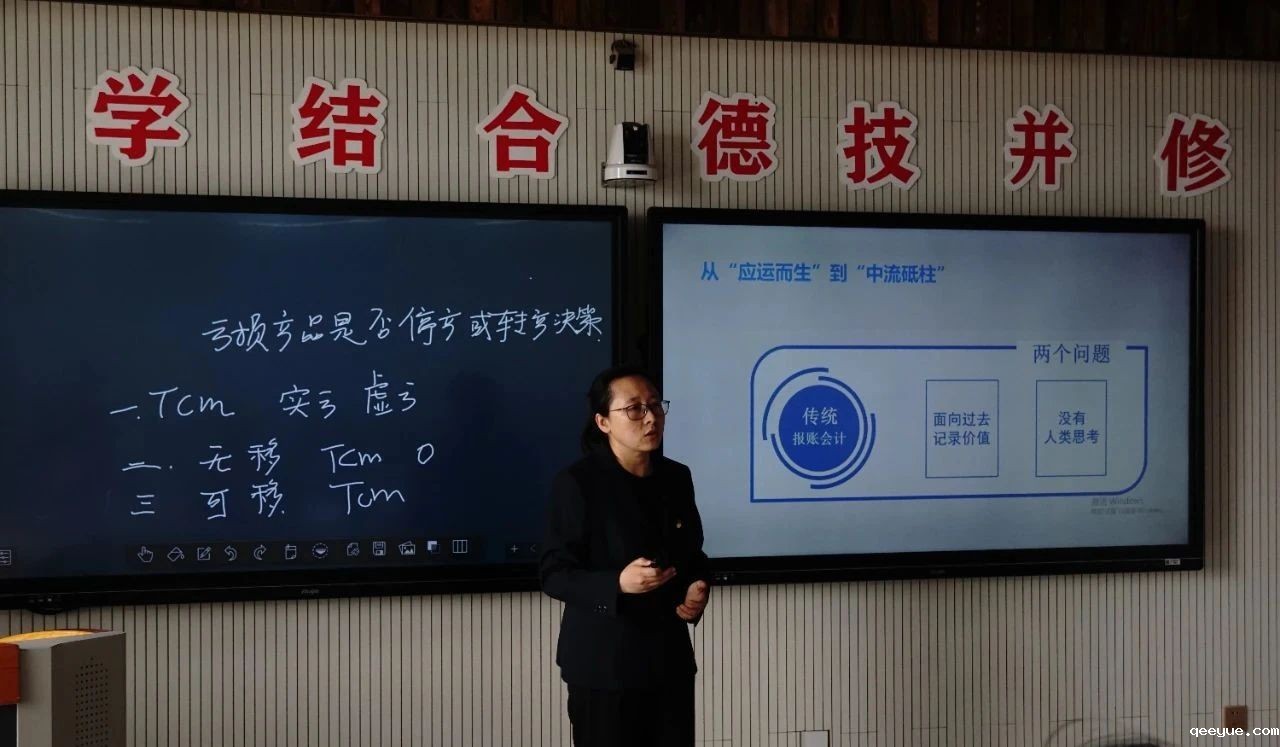 学结合 德技并修
亏损产品是否停产或转产决策.
一.Tcm 实亏 虚亏
二.无移 Tcm 0
三 可移 Tcm
从“应运而生”到“中流砥柱”
两个问题
传统
报账会计
面向过去
记录价值
没有
人类思考
激活 Windows
qeeyue.com